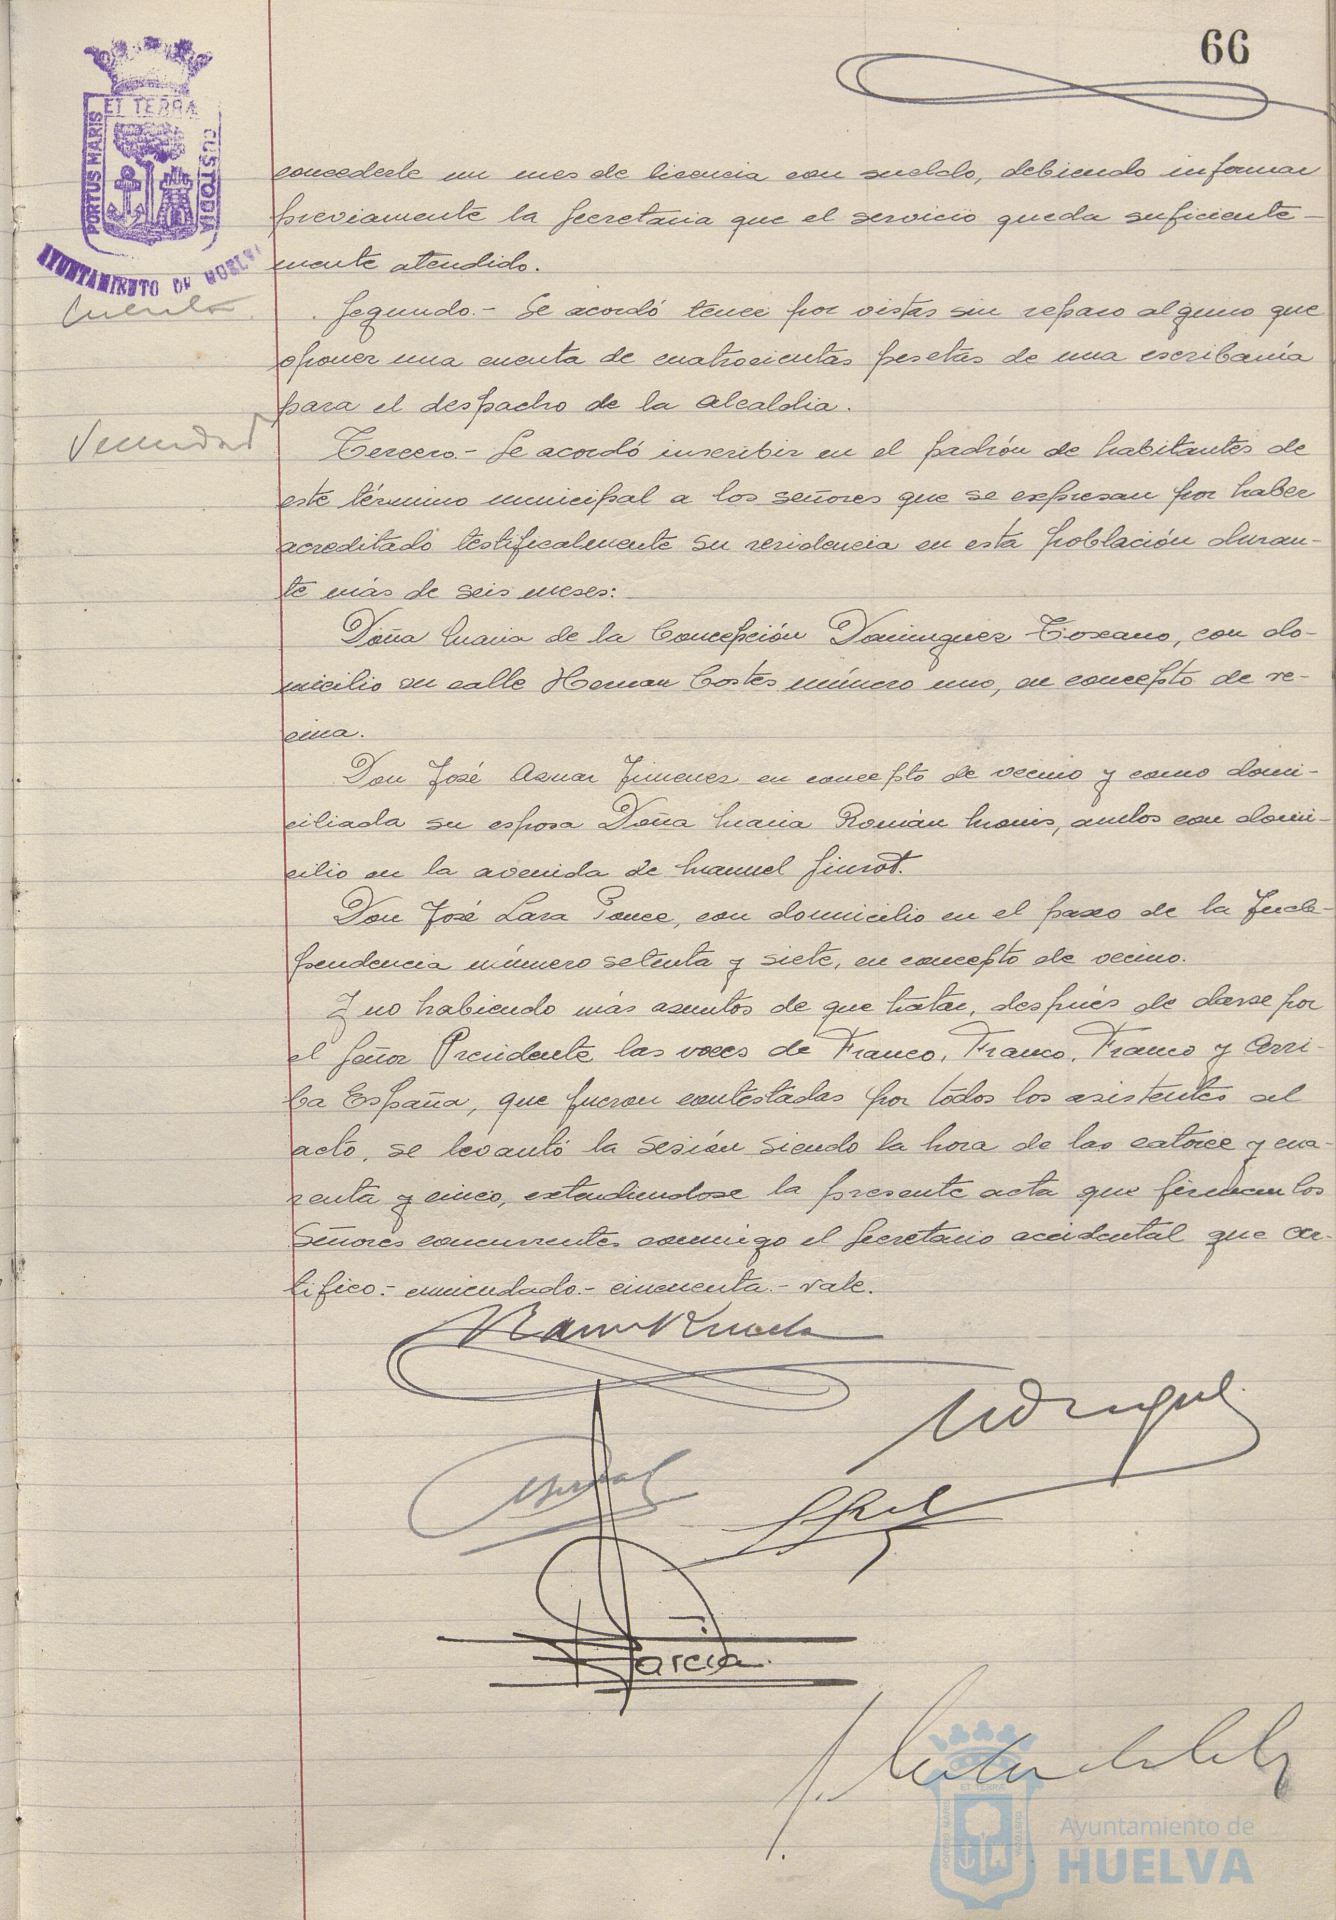 66
ET TERRA
PORTUS MARIS
CUSTODIA
AYUNTAMIENTO DE HUELVA
concederle un mes de licencia con sueldo, debiendo informar
previamente la Secretaria que el servicio queda suficiente-
mente atendido.
Cuenta
Segundo.- Se acordó tener por vistas sin reparo alguno que
oponer una cuenta de cuatrocientas pesetas de una escribanía
para el despacho de la Alcaldia.
Vecindad
Tercero.- Se acordó inscribir en el padrón de habitantes de
este término municipal a los señores que se expresan por haber
acreditado testificalmente su residencia en esta población duran-
te más de seis meses:
Doña Maria de la Concepción Dominguez Toscano, con do-
micilio en calle Hernan Cortes número uno, en concepto de ve-
cina.
Don José Asnar Jimenez en concepto de vecino y como domi-
ciliada su esposa Doña Maria Román Monis, ambos con domi-
cilio en la avenida de Manuel Siurot.
Don José Lara Ponce, con domicilio en el paseo de la Inde-
pendencia número setenta y siete, en concepto de vecino.
Y no habiendo más asuntos de que tratar, después de darse por
el Señor Presidente las voces de Franco, Franco, Franco y Arri-
ba España, que fueron contestadas por todos los asistentes al
acto, se levantó la sesión siendo la hora de las catorce y cua-
renta y cinco, extendiendose la presente acta que firman los
Señores concurrentes conmigo el Secretario accidental que cer-
tifico.- enmendado.- cincuenta.- vale.
Garcia
ET TERRA
PORTUS MARIS
CUSTODIA
Ayuntamiento de
HUELVA